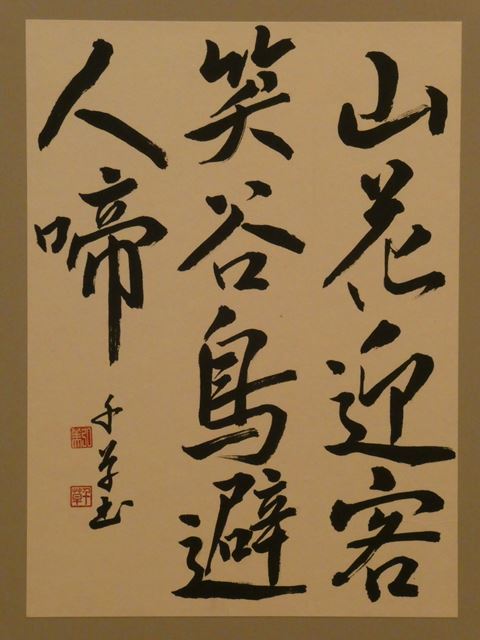 山花迎客
笑谷鳥避
人啼
千草書